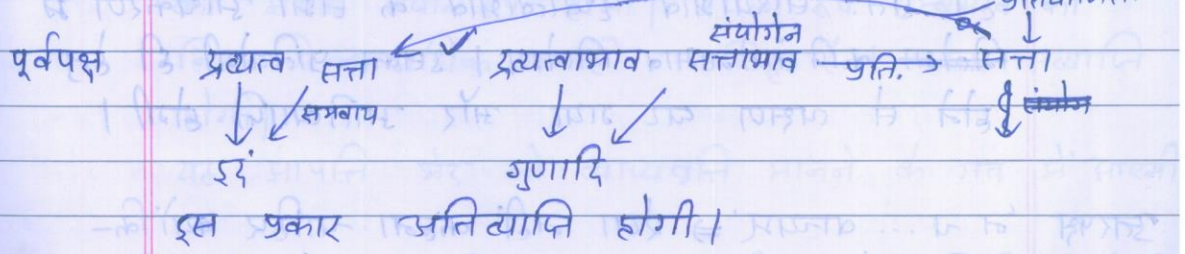 संयोगेन
पूर्वपक्ष द्रव्यत्व सत्ता द्रव्यत्वाभाव सत्ताभाव प्रति. → सत्ता
समवाय
इदं गुणादि
इस प्रकार अतिव्याप्ति होगी।